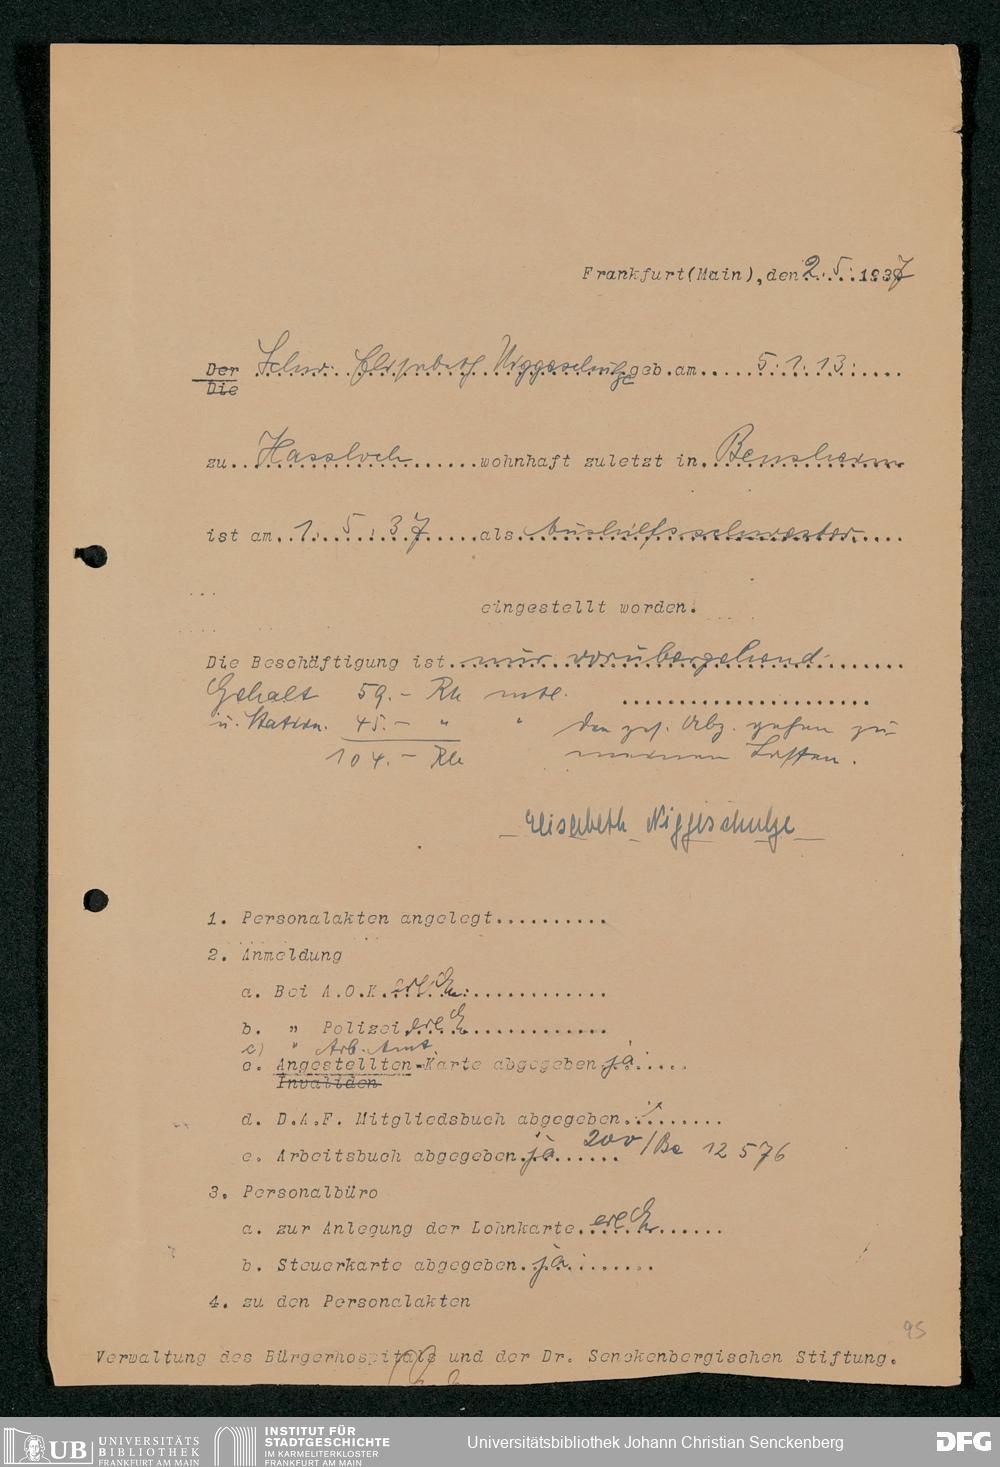 Frankfurt(Main),den 2. 5. 1937
Der Schw. Elisabeth Niggeschulze geb.am 5. 1. 13.
Die
zu Hassloch wohnhaft zuletzt in Bensheim
ist am 1. 5. 37 als Aushilfsschwester
eingestellt worden.
Die Beschäftigung ist nur vorübergehend.
Gehalt 59.- RM mtl.
u. Station. 45.- " " den ges. Abz. gehen zu
104.- RM meinen Lasten.
Elisabeth Niggeschulze
1. Personalakten angelegt..........
2. Anmeldung
a. Bei A.O.K. erl.
b. " Polizei erl
c) " Arb. Amt.
c. Angestellten-Karte abgegeben ja
Invaliden
d. D.A.F. Mitgliedsbuch abgegeben
e. Arbeitsbuch abgegeben ja 200/Be 12 576
3. Personalbüro
a. zur Anlegung der Lohnkarte erl
b. Steuerkarte abgegeben ja
4. zu den Personalakten
95
Verwaltung des Bürgerhospitals und der Dr. Senckenbergischen Stiftung.
UB UNIVERSITÄTS
BIBLIOTHEK
FRANKFURT AM MAIN
INSTITUT FÜR
STADTGESCHICHTE
IM KARMELITERKLOSTER
FRANKFURT AM MAIN
Universitätsbibliothek Johann Christian Senckenberg
DFG